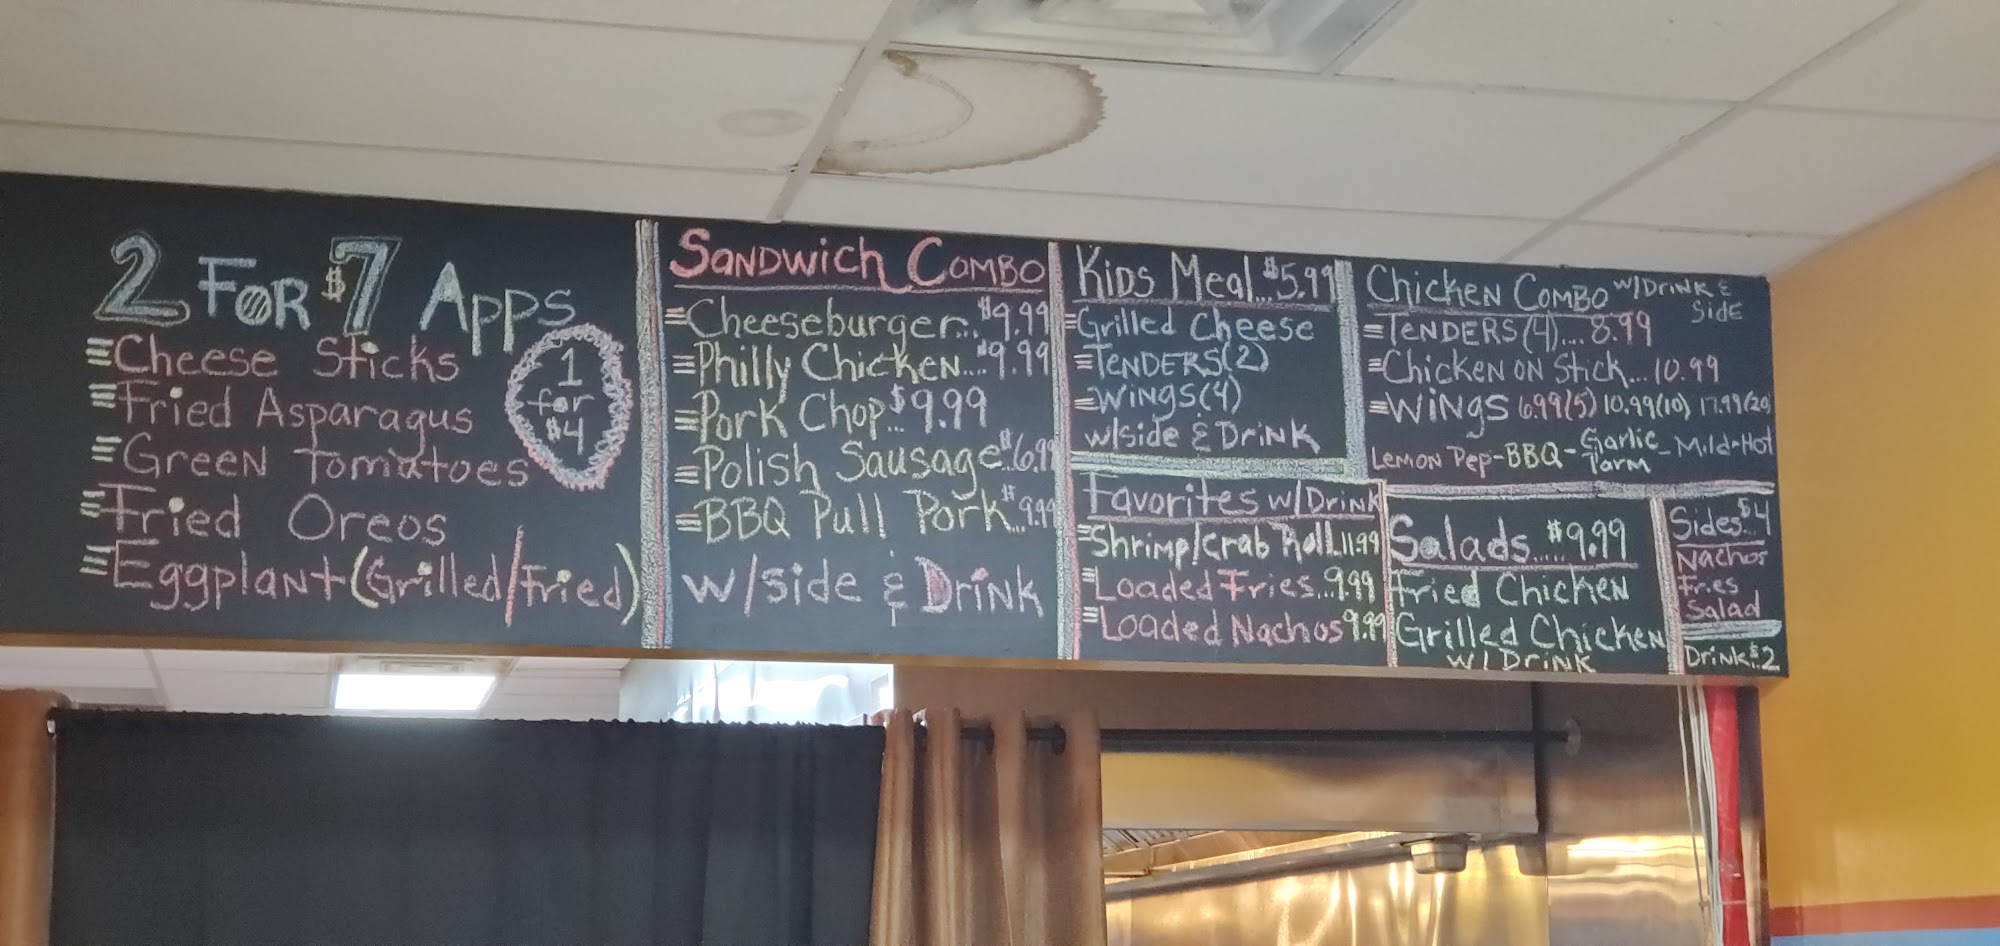 2 FOR $7 Apps
Cheese Sticks
Fried Asparagus
Green Tomatoes
Fried Oreos
Eggplant (Grilled/Fried)
1
for
$4
Sandwich Combo
Cheeseburger... $9.99
Philly Chicken.... $9.99
Pork Chop... $9.99
Polish Sausage $6.99
BBQ Pull Pork... $9.99
w/side & Drink
Kids Meal... $5.99
Grilled Cheese
Tenders(2)
Wings(4)
w/side & Drink
Favorites w/Drink
Shrimp/Crab Roll..11.99
Loaded Fries...9.99
Loaded Nachos 9.99
Chicken Combo w/Drink &
Side
Tenders(4).... 8.99
Chicken on Stick... 10.99
Wings 6.99(5) 10.99(10) 17.99(20)
Lemon Pep-BBQ-Garlic Parm-Mild-Hot
Salads..... $9.99
Fried Chicken
Grilled Chicken
w/Drink
Sides...$4
Nachos
Fries
Salad
Drink..$2